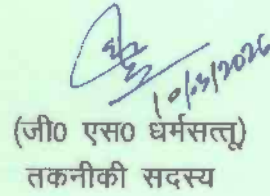 10/3/2026
(जी0 एस0 धर्मसत्तू)
तकनीकी सदस्य